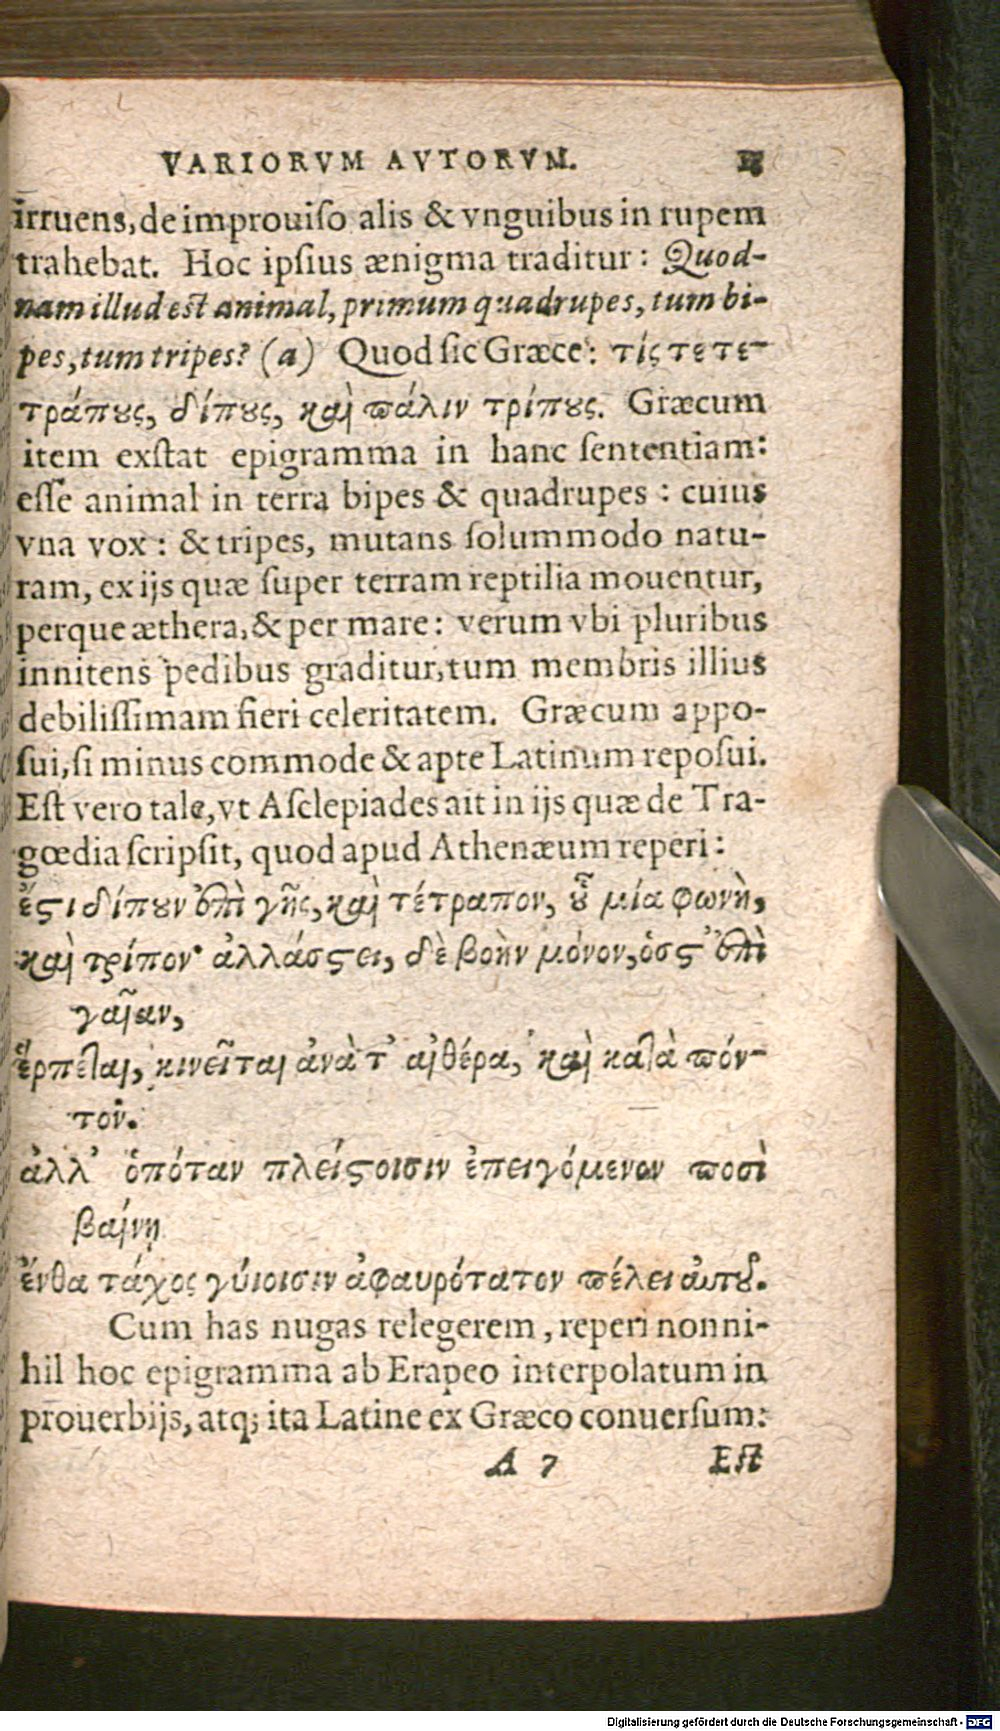 VARIORVM AVTORVM.
irruens, de improuiſo alis & vnguibus in rupem
trahebat. Hoc ipſius ænigma traditur: Quod-
nam illud est animal, primum quadrupes, tum bi-
pes, tum tripes? (a) Quod ſic Græce: τίς τε τε-
τράπους, δίπους, καὶ πάλιν τρίπους. Græcum
item exſtat epigramma in hanc ſententiam:
eſſe animal in terra bipes & quadrupes: cuius
vna vox: & tripes, mutans ſolummodo natu-
ram, ex ijs quæ ſuper terram reptilia mouentur,
perque æthera, & per mare: verum vbi pluribus
innitens pedibus graditur, tum membris illius
debiliſſimam fieri celeritatem. Græcum appo-
ſui, ſi minus commode & apte Latinum repoſui.
Eſt vero tale, vt Aſclepiades ait in ijs quæ de Tra-
gœdia ſcripſit, quod apud Athenæum reperi:
ἔςι δίπουν ἐπὶ γῆς, καὶ τέτραπον, οὗ μία φωνὴ,
καὶ τρίπον· ἀλλάσςει, δὲ βοὴν μόνον, ὁσς᾽ ἐπὶ
γαῖαν,
ἕρπεται, κινεῖται ἀνὰ τ᾽ αἰθέρα, καὶ κατὰ πόν-
τον.
ἀλλ᾽ ὁπόταν πλείςοισιν ἐπειγόμενον ποσὶ
βαίνῃ
ἔνθα τάχος γύιοισιν ἀφαυρότατον πέλει αὐτοῦ.
Cum has nugas relegerem, reperi nonni-
hil hoc epigramma ab Erapeo interpolatum in
prouerbijs, atq; ita Latine ex Græco conuerſum:
A 7 Eſt
Digitalisierung gefördert durch die Deutsche Forschungsgemeinschaft - DFG